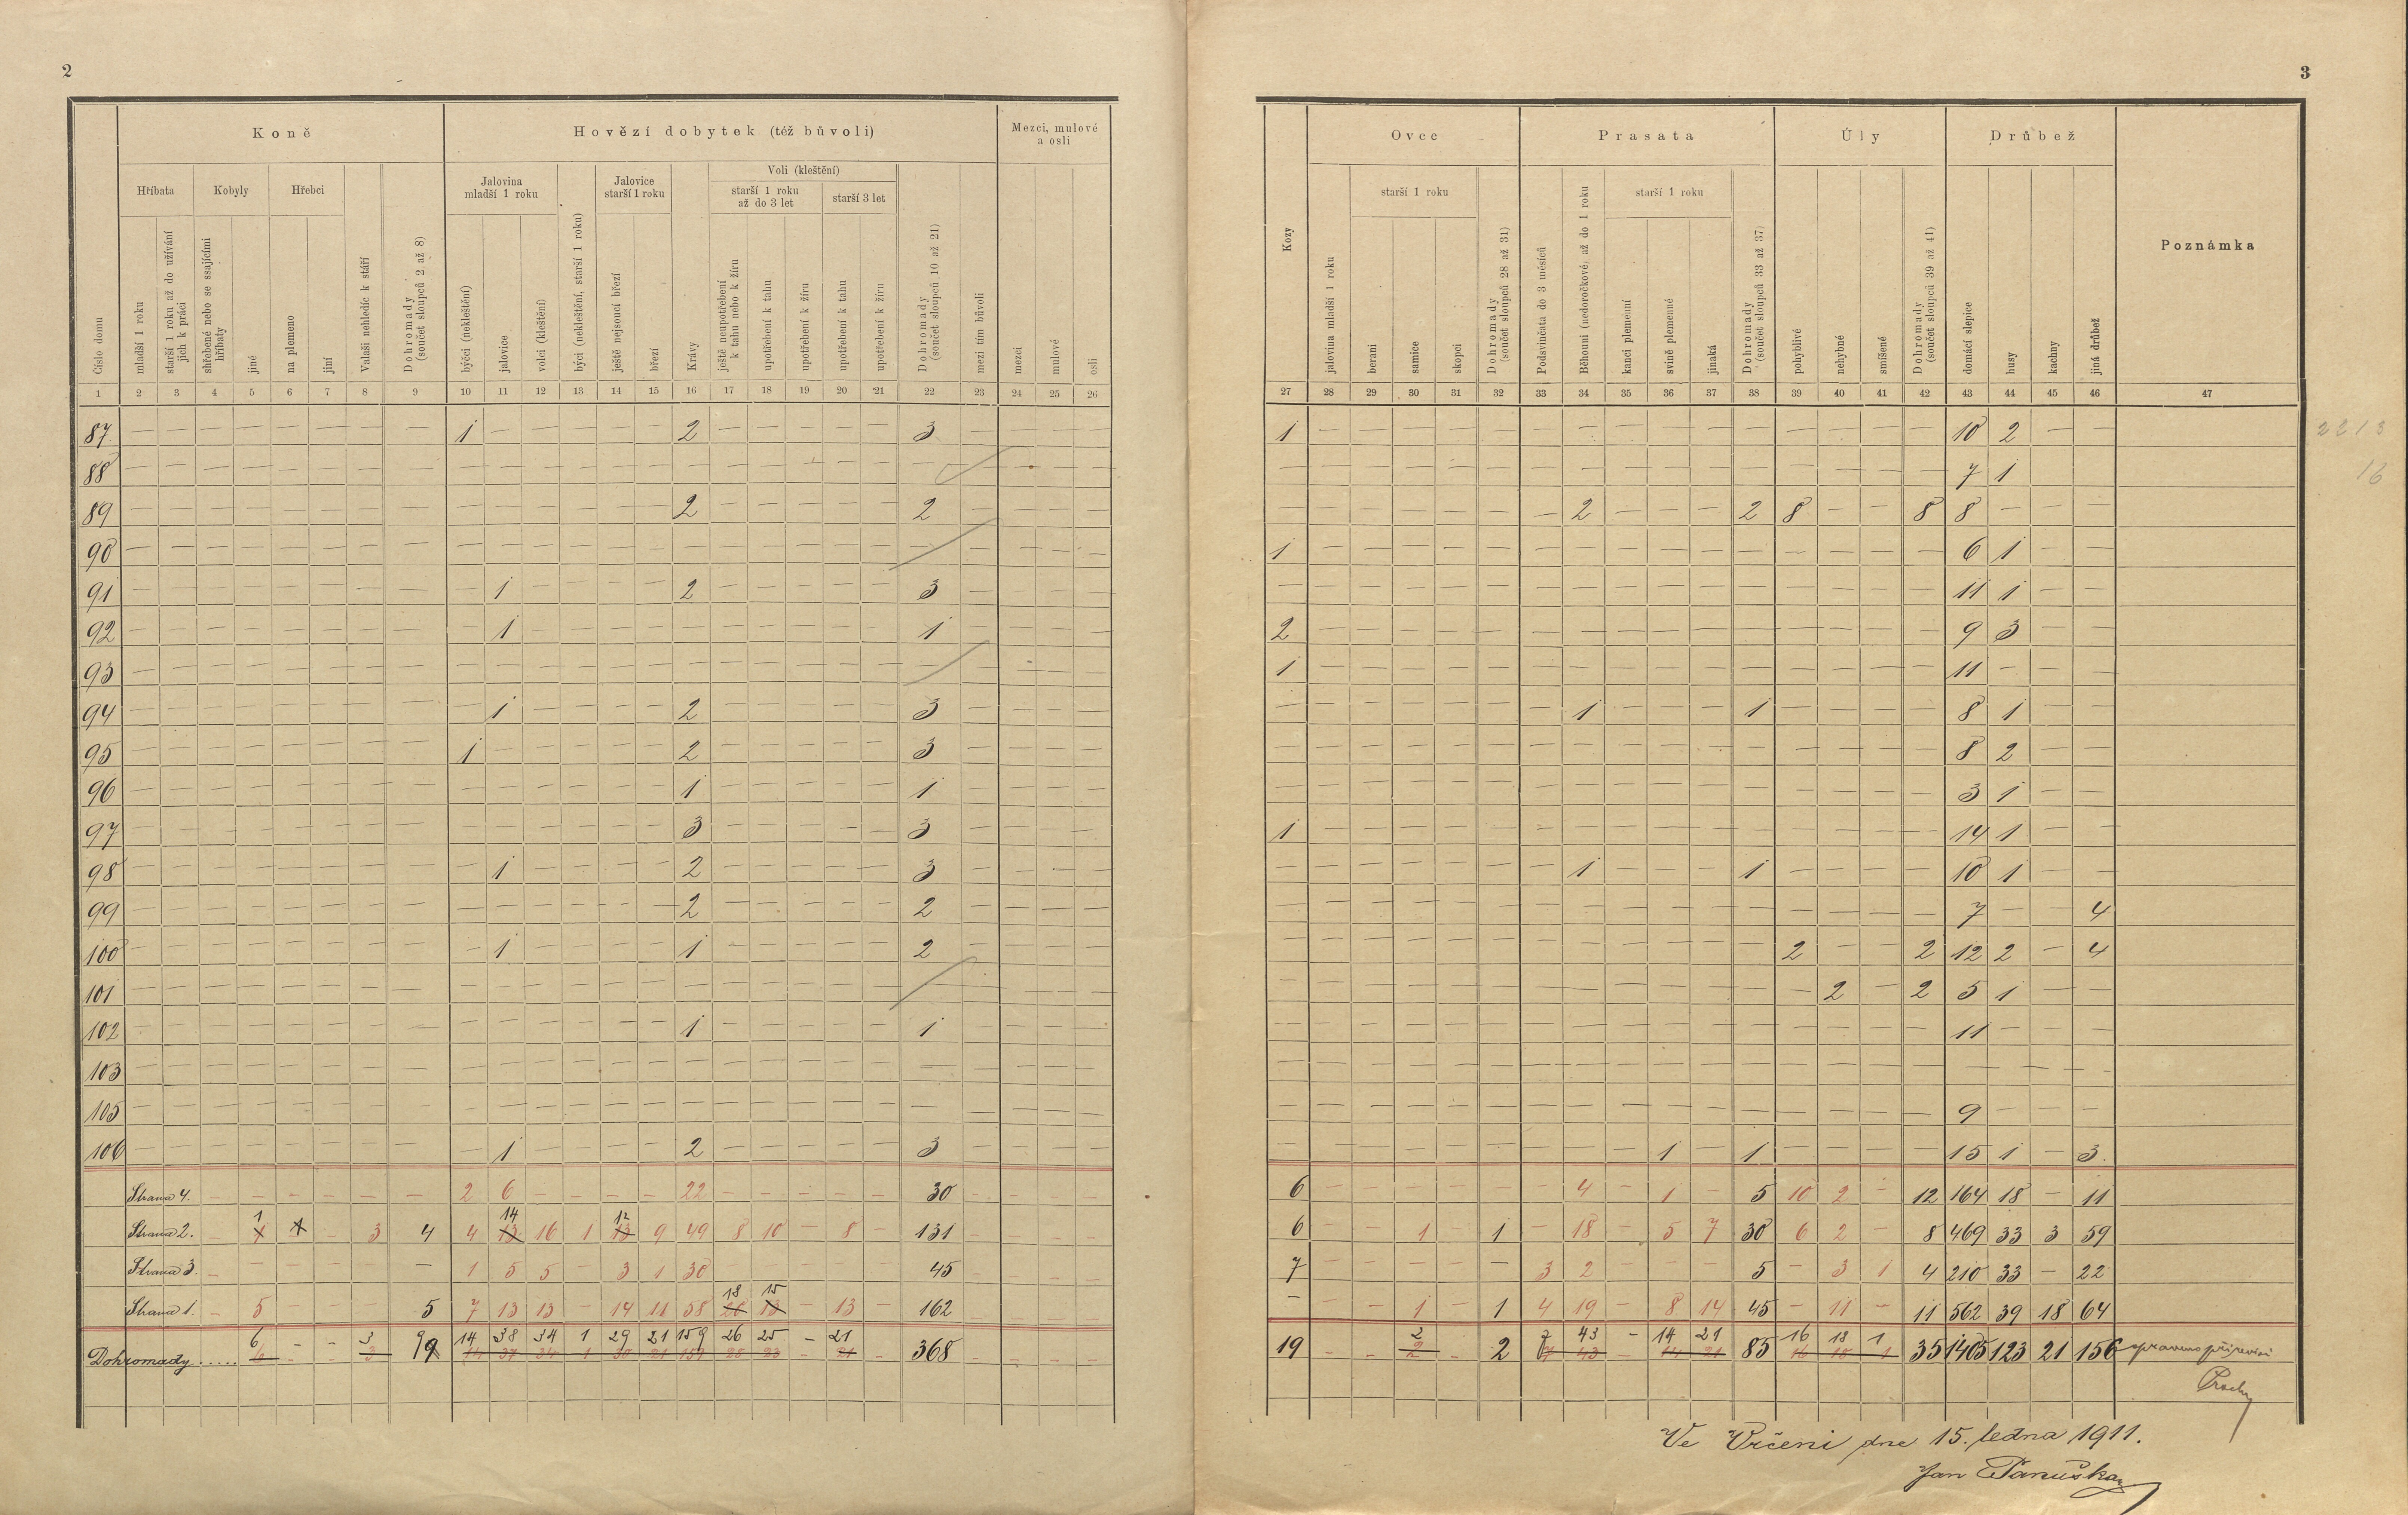 2
3
Koně
Hovězí dobytek (též bůvoli)
Mezci, mulové
a osli
Hříbata
Kobyly
Hřebci
Jalovina
mladší 1 roku
Jalovice
starší 1 roku
Voli (kleštění)
starší 1 roku
až do 3 let
starší 3 let
Číslo domu
mladší 1 roku
starší 1 roku až do užívání
jich k práci
shřebené nebo se ssajícími
hříbaty
jiné
na plemeno
jiní
Valaši nehledíc k stáří
Dohromady
(součet sloupců 2 až 8)
býčci (nekleštění)
jalovice
volci (kleštění)
býci (nekleštění, starší 1 roku)
ještě nejsoucí březí
březí
Krávy
ještě neupotřebení
k tahu nebo k žíru
upotřebení k tahu
upotřebení k žíru
upotřebení k tahu
upotřebení k žíru
Dohromady
(součet sloupců 10 až 21)
mezi tím bůvoli
mezci
mulové
osli
1 2 3 4 5 6 7 8 9 10 11 12 13 14 15 16 17 18 19 20 21 22 23 24 25 26
Ovce
Prasata
Úly
Drůbež
starší 1 roku
starší 1 roku
Kozy
jalovina mladší 1 roku
berani
samice
skopci
Dohromady
(součet sloupců 28 až 31)
Podsvinčata do 3 měsíců
Běhouni (nedoročkové) až do 1 roku
kanci plemenní
svině plemenné
jinaká
Dohromady
(součet sloupců 33 až 37)
pohyblivé
nehybné
smíšené
Dohromady
(součet sloupců 39 až 41)
domácí slepice
husy
kachny
jiná drůbež
Poznámka
27 28 29 30 31 32 33 34 35 36 37 38 39 40 41 42 43 44 45 46 47
87 — — — — — — — — 1 — — — — — 2 — — — — — 3 — — — — 1 — — — — — — — — — — — — — — — 10 2 — — 2213
88 — — — — — — — — — — — — — — — — — — — — — — — — — — — — — — — — — — — — — — — — 7 1 — — 16
89 — — — — — — — — — — — — — — 2 — — — — — 2 — — — — — — — — — — — 2 — — — 2 8 — — 8 8 — — —
90 — — — — — — — — — — — — — — — — — — — — — — — — 1 — — — — — — — — — — — — — — — 6 1 — —
91 — — — — — — — — — 1 — — — — 2 — — — — — 3 — — — — — — — — — — — — — — — — — — — — 11 1 — —
92 — — — — — — — — — 1 — — — — — — — — — — 1 — — — — 2 — — — — — — — — — — — — — — — 9 3 — —
93 — — — — — — — — — — — — — — — — — — — — — — — — 1 — — — — — — — — — — — — — — — 11 — — —
94 — — — — — — — — — 1 — — — — 2 — — — — — 3 — — — — — — — — — — — 1 — — — 1 — — — — 8 1 — —
95 — — — — — — — — 1 — — — — — 2 — — — — — 3 — — — — — — — — — — — — — — — — — — — — 8 2 — —
96 — — — — — — — — — — — — — — 1 — — — — — 1 — — — — — — — — — — — — — — — — — — — — 3 1 — —
97 — — — — — — — — — — — — — — 3 — — — — — 3 — — — — 1 — — — — — — — — — — — — — — — 14 1 — —
98 — — — — — — — — — 1 — — — — 2 — — — — — 3 — — — — — — — — — — — 1 — — — 1 — — — — 10 1 — —
99 — — — — — — — — — — — — — — 2 — — — — — 2 — — — — — — — — — — — — — — — — — — — — 7 — — 4
100 — — — — — — — — — 1 — — — — 1 — — — — — 2 — — — — — — — — — — — — — — — — 2 — — 2 12 2 — 4
101 — — — — — — — — — — — — — — — — — — — — — — — — — — — — — — — — — — — — — 2 — 2 5 1 — —
102 — — — — — — — — — — — — — — 1 — — — — — 1 — — — — — — — — — — — — — — — — — — — — 11 — — —
103 — — — — — — — — — — — — — — — — — — — — — — — — — — — — — — — — — — — — — — — — — — — —
105 — — — — — — — — — — — — — — — — — — — — — — — — — — — — — — — — — — — — — — — — 9 — — —
106 — — — — — — — — — 1 — — — — 2 — — — — — 3 — — — — — — — — — — — — — 1 — 1 — — — — 15 1 — 3
Strana 4. — — — — — — 2 6 — — — — 22 — — — — — 30 — — — — 6 — — — — — — 4 — 1 — 5 10 2 — 12 164 18 — 11
1 14 12
Strana 2. — 1 1 — 3 4 4 13 16 1 13 9 49 8 10 — 8 — 131 — — — — 6 — — 1 — 1 — 18 — 5 7 30 6 2 — 8 469 33 3 59
Strana 3. — — — — — — — 1 5 5 3 1 30 — — — — — 45 — — — — 7 — — — — — 3 2 — — — 5 — 3 1 4 210 33 — 22
18 15
Strana 1. — 5 — — — 5 7 13 13 — 14 11 58 20 13 — 13 — 162 — — — — — — — 1 — 1 4 19 — 8 14 45 — 11 — 11 562 39 18 64
6 — — 3 9 14 38 34 1 29 21 159 26 25 — 21 2 7 43 — 14 21 16 18 1
Dohromady ..... 6 — — 3 9 14 37 34 1 30 21 159 28 23 21 368 — — — — 19 — — 2 — 2 7 43 — 14 21 85 16 18 1 35 1405 123 21 156 opraveno při revisi
Ve Vrčeni dne 15. ledna 1911.
Jan Panuška